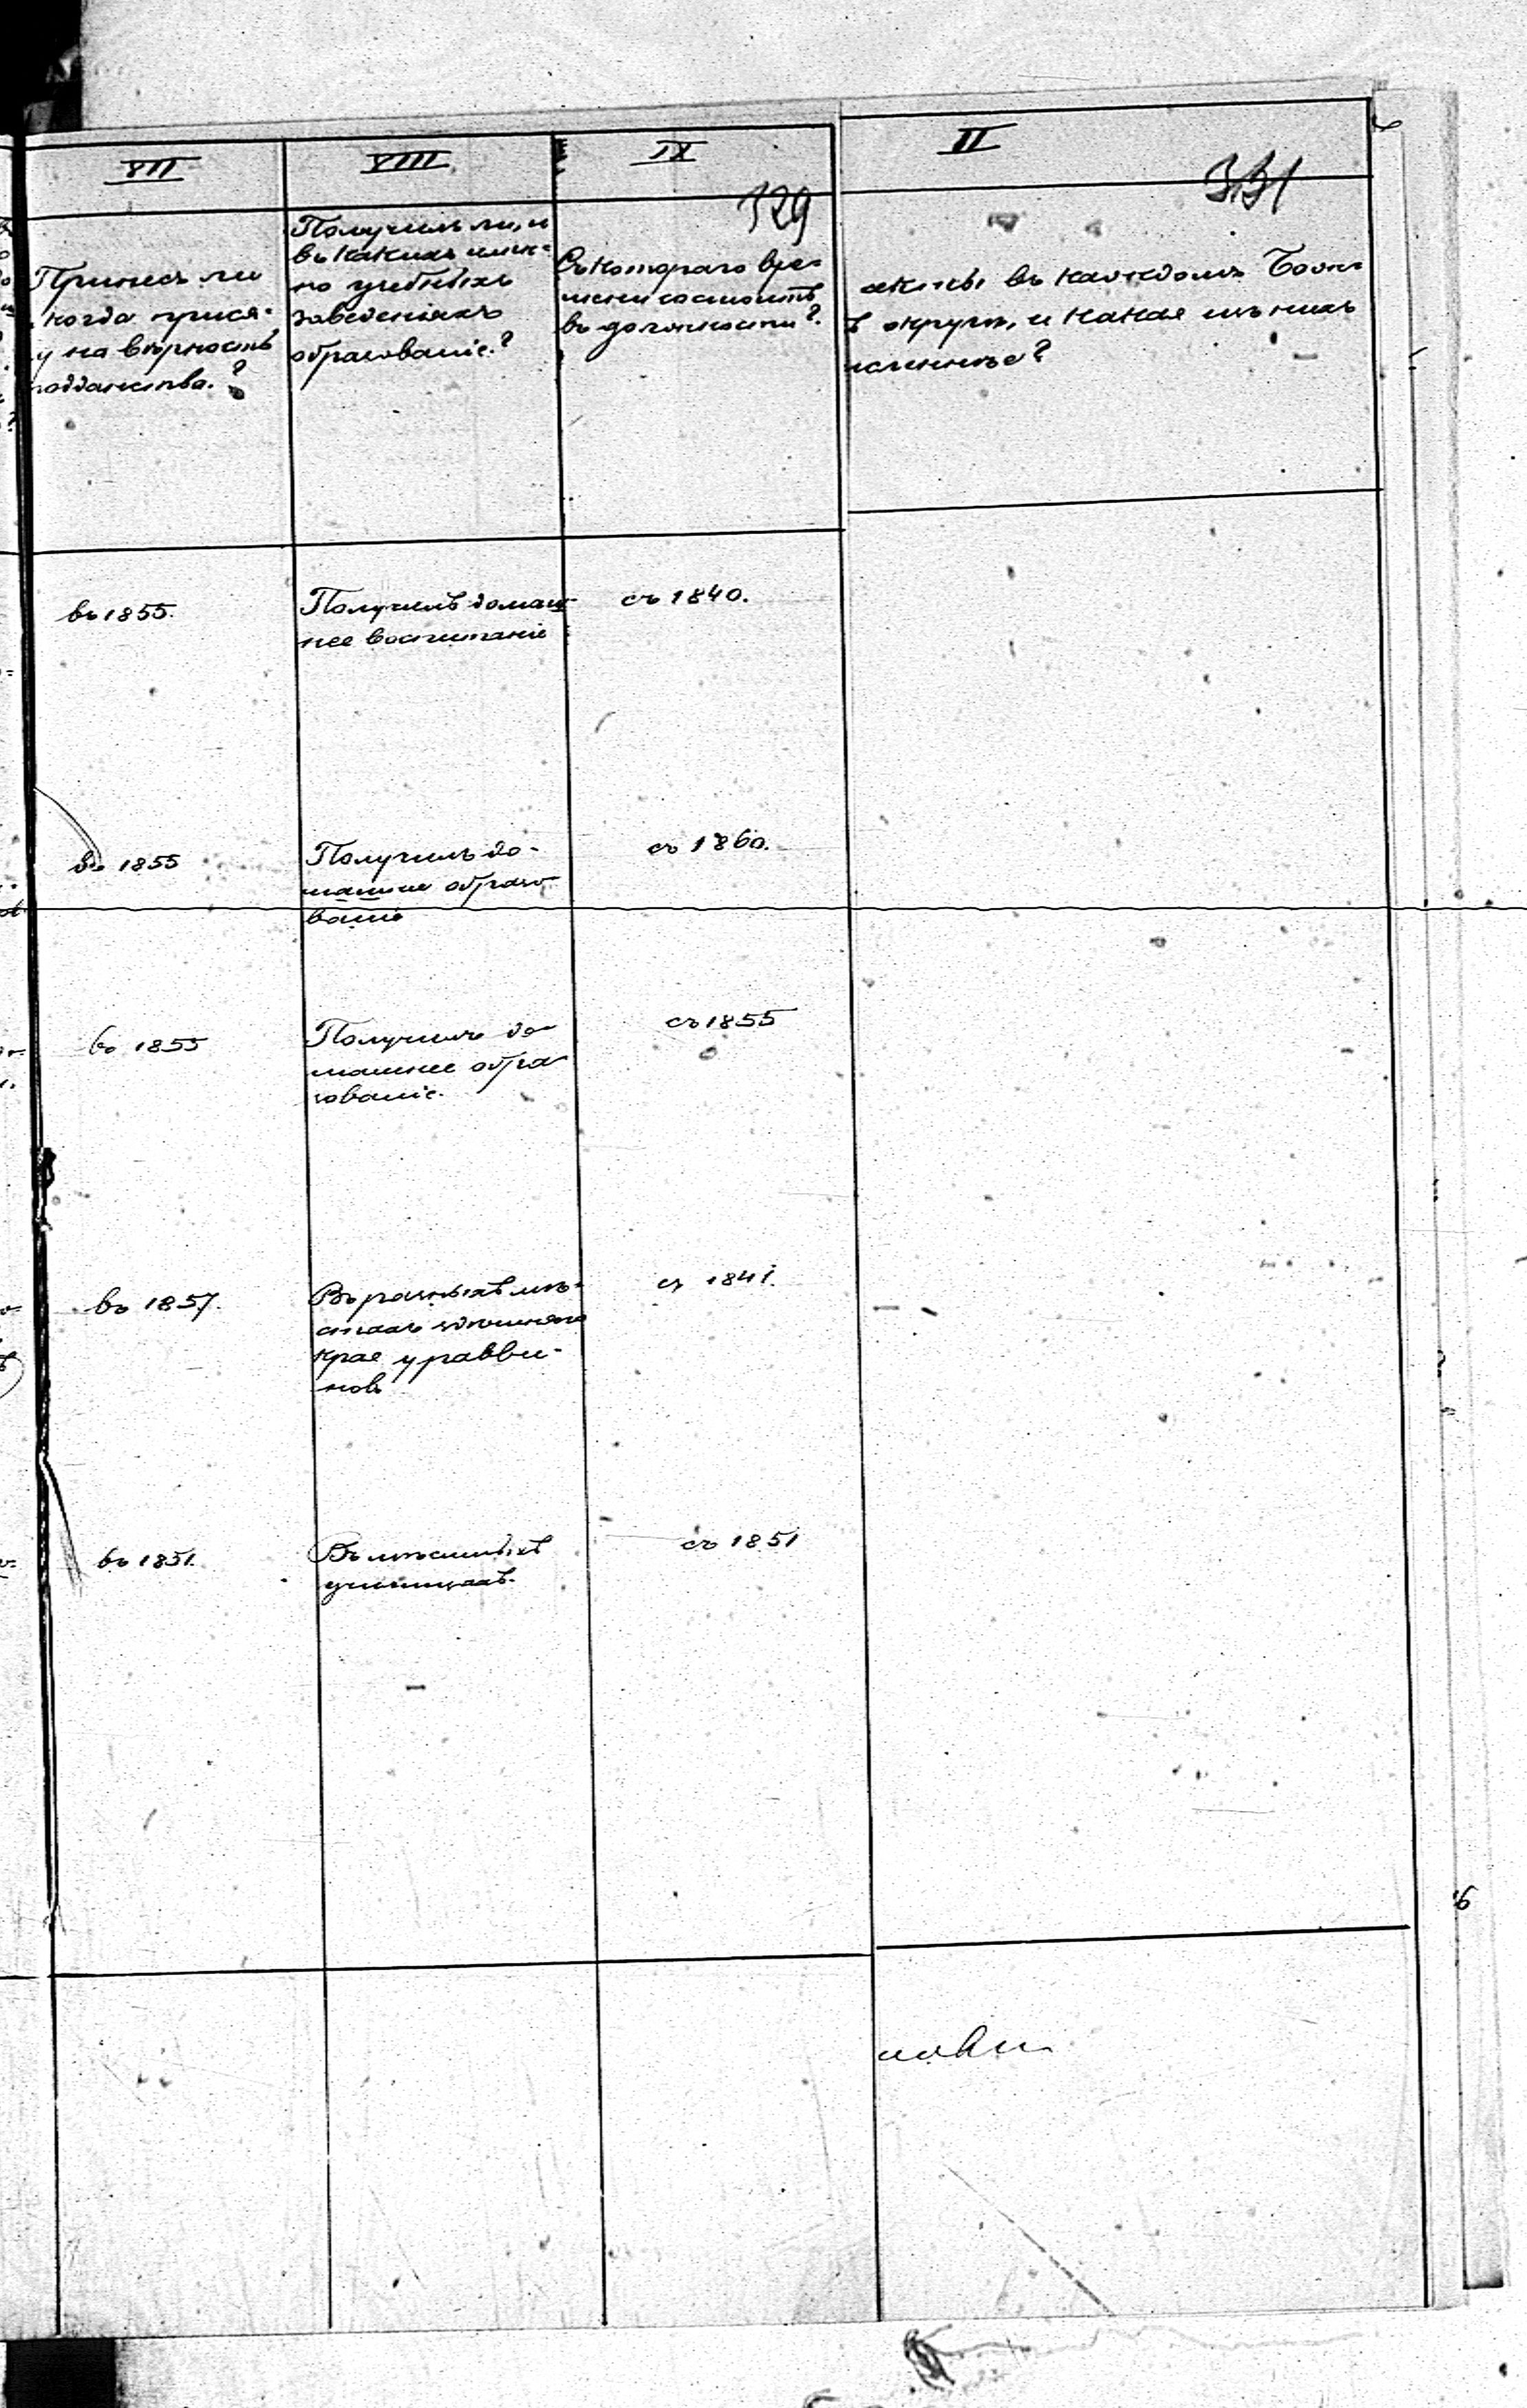 VII
VIII
IX
329
II
331
Принесъ ли
когда прися-
у на вѣрность
подданства.?
Получилъ ли, и
въ какихъ имен-
но учебныхъ
заведеніяхъ
образованіе.?
Съ котораго вре-
мени состоитъ
въ должности?.
въ каждомъ
ъ округѣ, и какая изъ нихъ
въ 1855.
Получилъ домаш-
нее воспитаніе
съ 1840.
въ 1855
Получилъ до-
машнее образо-
ваніе
съ 1860.
въ 1855
Получилъ до-
машнее обра-
зованіе.
съ 1855
въ 1857.
Въ разныхъ мѣ-
стахъ здѣшняго
края у равви-
новъ
съ 1841.
въ 1851.
Въ мѣстныхъ
училищахъ.
съ 1851
6